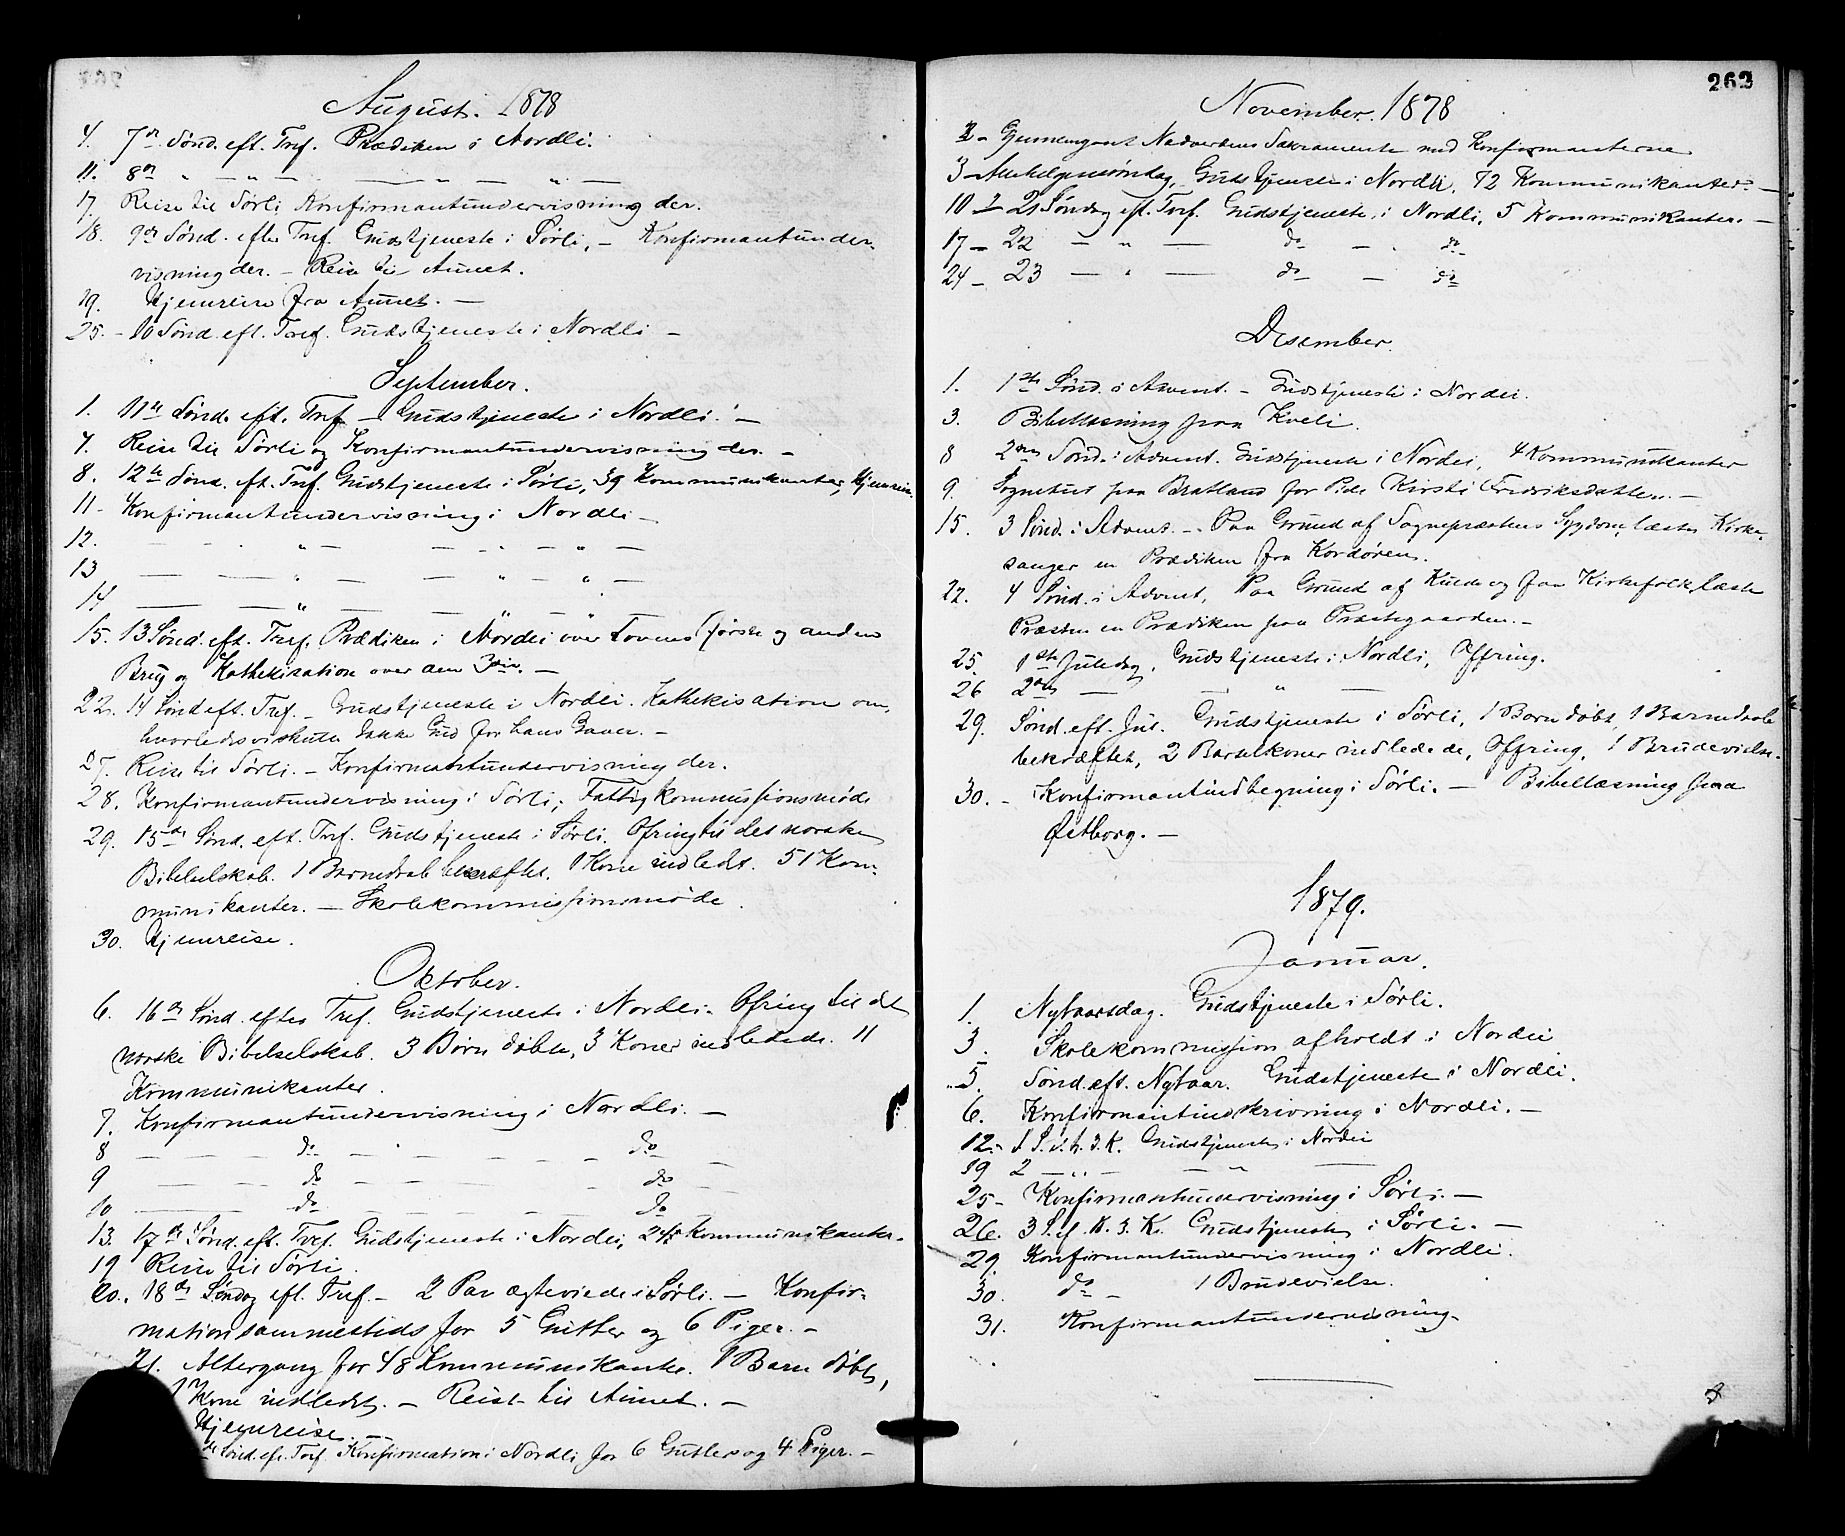 August. 1878
4. 7de Sønd. eft. Tref. Prædiken i Nordli.
11. 8de " — " — — " — " —
17. Reise til Sørli Konfirmantundervisning der.
18. 9de Sønd. efter Tref. Gudstjeneste i Sørli, — Konfirmantunder-
visning der. — Reise til Aunet.
19. Hjemreise fra Aunet. —
25. – 10 Sønd. eft. Tref. Gudstjeneste i Nordli —
September.
1. 11te Sønd. eft. Tref — Gudstjeneste i Nordli. —
7. Reise til Sørli og Konfirmantundervisning der. —
8. 12te Sønd. eft. Tref. Gudstjeneste i Sørli, 39 Kommunikanter, Hjemreise.
11 – Konfirmantundervisning i Nordli —
12. — " — — " — " —
13 — — " — — " — " —
14 — — " — — " — " —
15. 13 Sønd. eft. Tref. Prædiken i Nordli over Lovens første og anden
Brug og Kathekisation over den 3die. —
22. 14 Sønd eft. Tref. — Gudstjeneste i Nordli. Kathekisation om,
hvorledes vi skulle takke Gud for hans Gaver. —
27. Reise til Sørli. — Konfirmantundervisning der.
28. Konfirmantundervisning i Sørli; Fattigkommissionsmøde
29. 15de Sønd. eft. Tref. Gudstjeneste i Sørli. Ofring til det norske
Bibelselskab. 1 Barnedaab bekræftet. 1 Kone indledt. 51 Kom-
munikanter. — Skolekommissionsmøde.
30. Hjemreise.
Oktober.
6. 16de Sønd. efter Tref. Gudstjeneste i Nordli. Ofring til det
norske Bibelselskab. 3 Børn døbte, 3 Koner indledede. 11
Kommunikanter.
7. Konfirmantundervisning i Nordli. —
8 — — do — — do —
9 — — do — — do —
10 — — do — — do —
13. 17de Sønd. eft. Tref. Gudstjeneste i Nordli, Kommunikanter.
19 Reise til Sørli.
20. 18de Søndag eft. Tref. — 2 Par ægteviede i Sørli. — Konfir-
mation sammesteds for 5 Gutter og 6 Piger. —
21. Altergang for 48 Kommunikanter. 1 Barn døbt,
1 Kone indledt. — Reist til Aunet. —
Hjemreise. —
Sønd. eft. Tref. Konfirmation i Nordli for 6 Gutter og 4 Piger. —
262
November. 1878
2 – Nadverdens Sakramente med Konfirmanterne
3 – Allehelgensøndag, Gudstjeneste i Nordli, 72 Kommunikanter. —
10 – 21 Søndag eft. Tref. Gudstjeneste i Nordli, 5 Kommunikanter. —
17 – 22 — " — do — do
24 – 23 — " — do — do
Desember.
1. 1ste Sønd. i Advent. — Gudstjeneste i Nordli.
3. Bibellæsning paa Kveli.
8 2den Sønd. i Advent. Gudstjeneste i Nordli, 4 Kommunikanter
9. Sognebud paa Bratland for Kirsti Fredriksdatter. —
15. 3 Sønd. i Advent. — Paa Grund af Sognepræstens Sygdom, læste Kirke-
sanger en Prædiken fra Kordøren.
22. 4 Sønd. i Advent, Paa Grund af Kulde og faa Kirkefolk, læste
Præsten en Prædiken paa Præstegaarden. —
25. 1ste Juledag. Gudstjeneste i Nordli, Offring.
26 2den — — " —
29. Sønd. eft. Jul. Gudstjeneste i Sørli, 1 Barn døbt, 1 Barnedaab
bekræftet, 2 Barselkoner indledede, Offring, 1 Brudevielse.
30. – Konfirmantindtegning i Sørli. — Bibellæsning paa
Østborg. —
1879.
Januar.
1. Nytaarsdag. Gudstjeneste i Sørli.
3. Skolekommission afholdt i Nordli
5. Sønd. eft. Nytaar. Gudstjeneste i Nordli.
6. Konfirmantindskrivning i Nordli. —
12. – 1 S. e. h. 3. K. Gudstjeneste i Nordli
19 2 — " — — " —
25 – Konfirmantundervisning i Sørli. —
26. 3 S. ef. H. 3. K. Gudstjeneste i Sørli. —
29. Konfirmantundervisning i Nordli.
30. do — 1 Brudevielse.
31. Konfirmantundervisning.